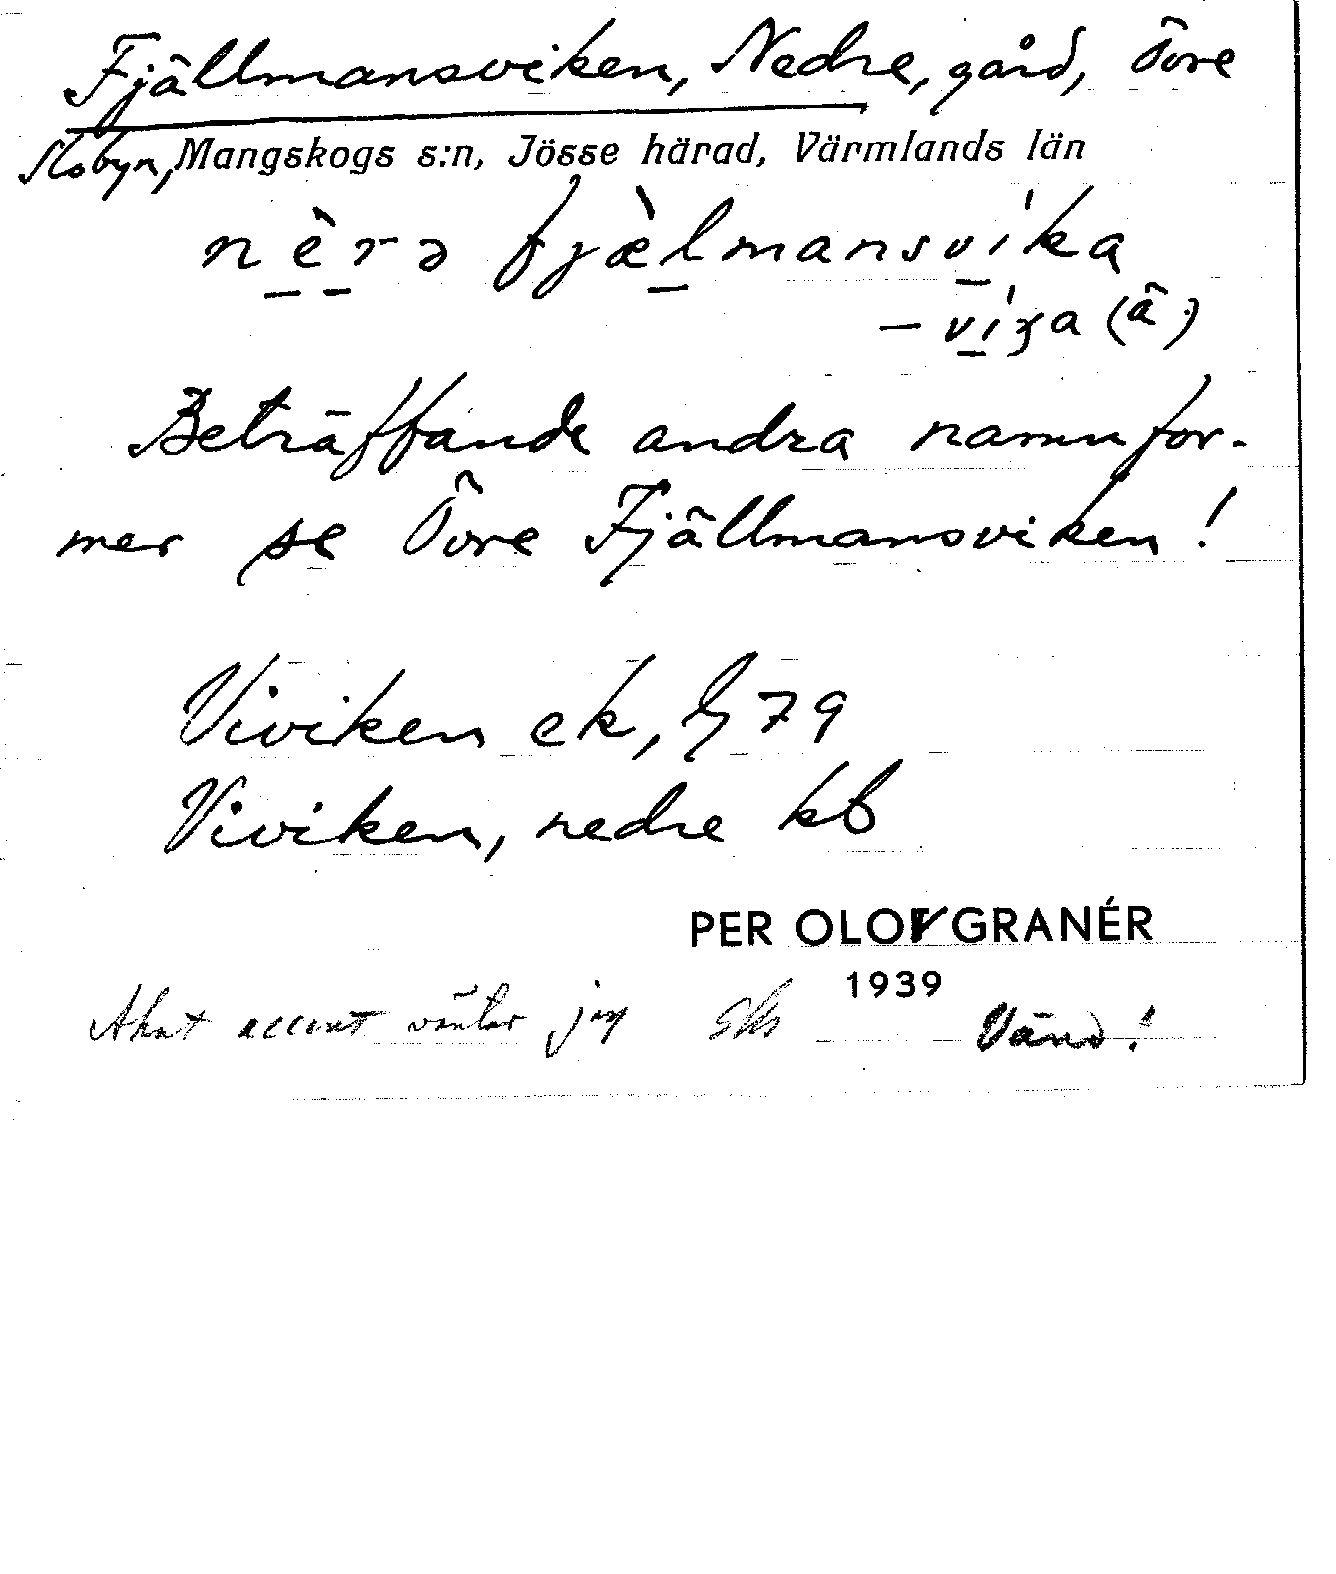 Fjällmansviken, Nedre, gård, Övre
Slobyn, Mangskogs s:n, Jösse härad, Värmlands län
nèrə fjæ̀lmansvíka
– víga (ä)
Beträffande andra namnfor-
mer se Övre Fjällmansviken!
Viviken ek, 79
Viviken, nedre kb
PER OLOV GRANÉR
1939
Akut accent väntar jag Vänd!